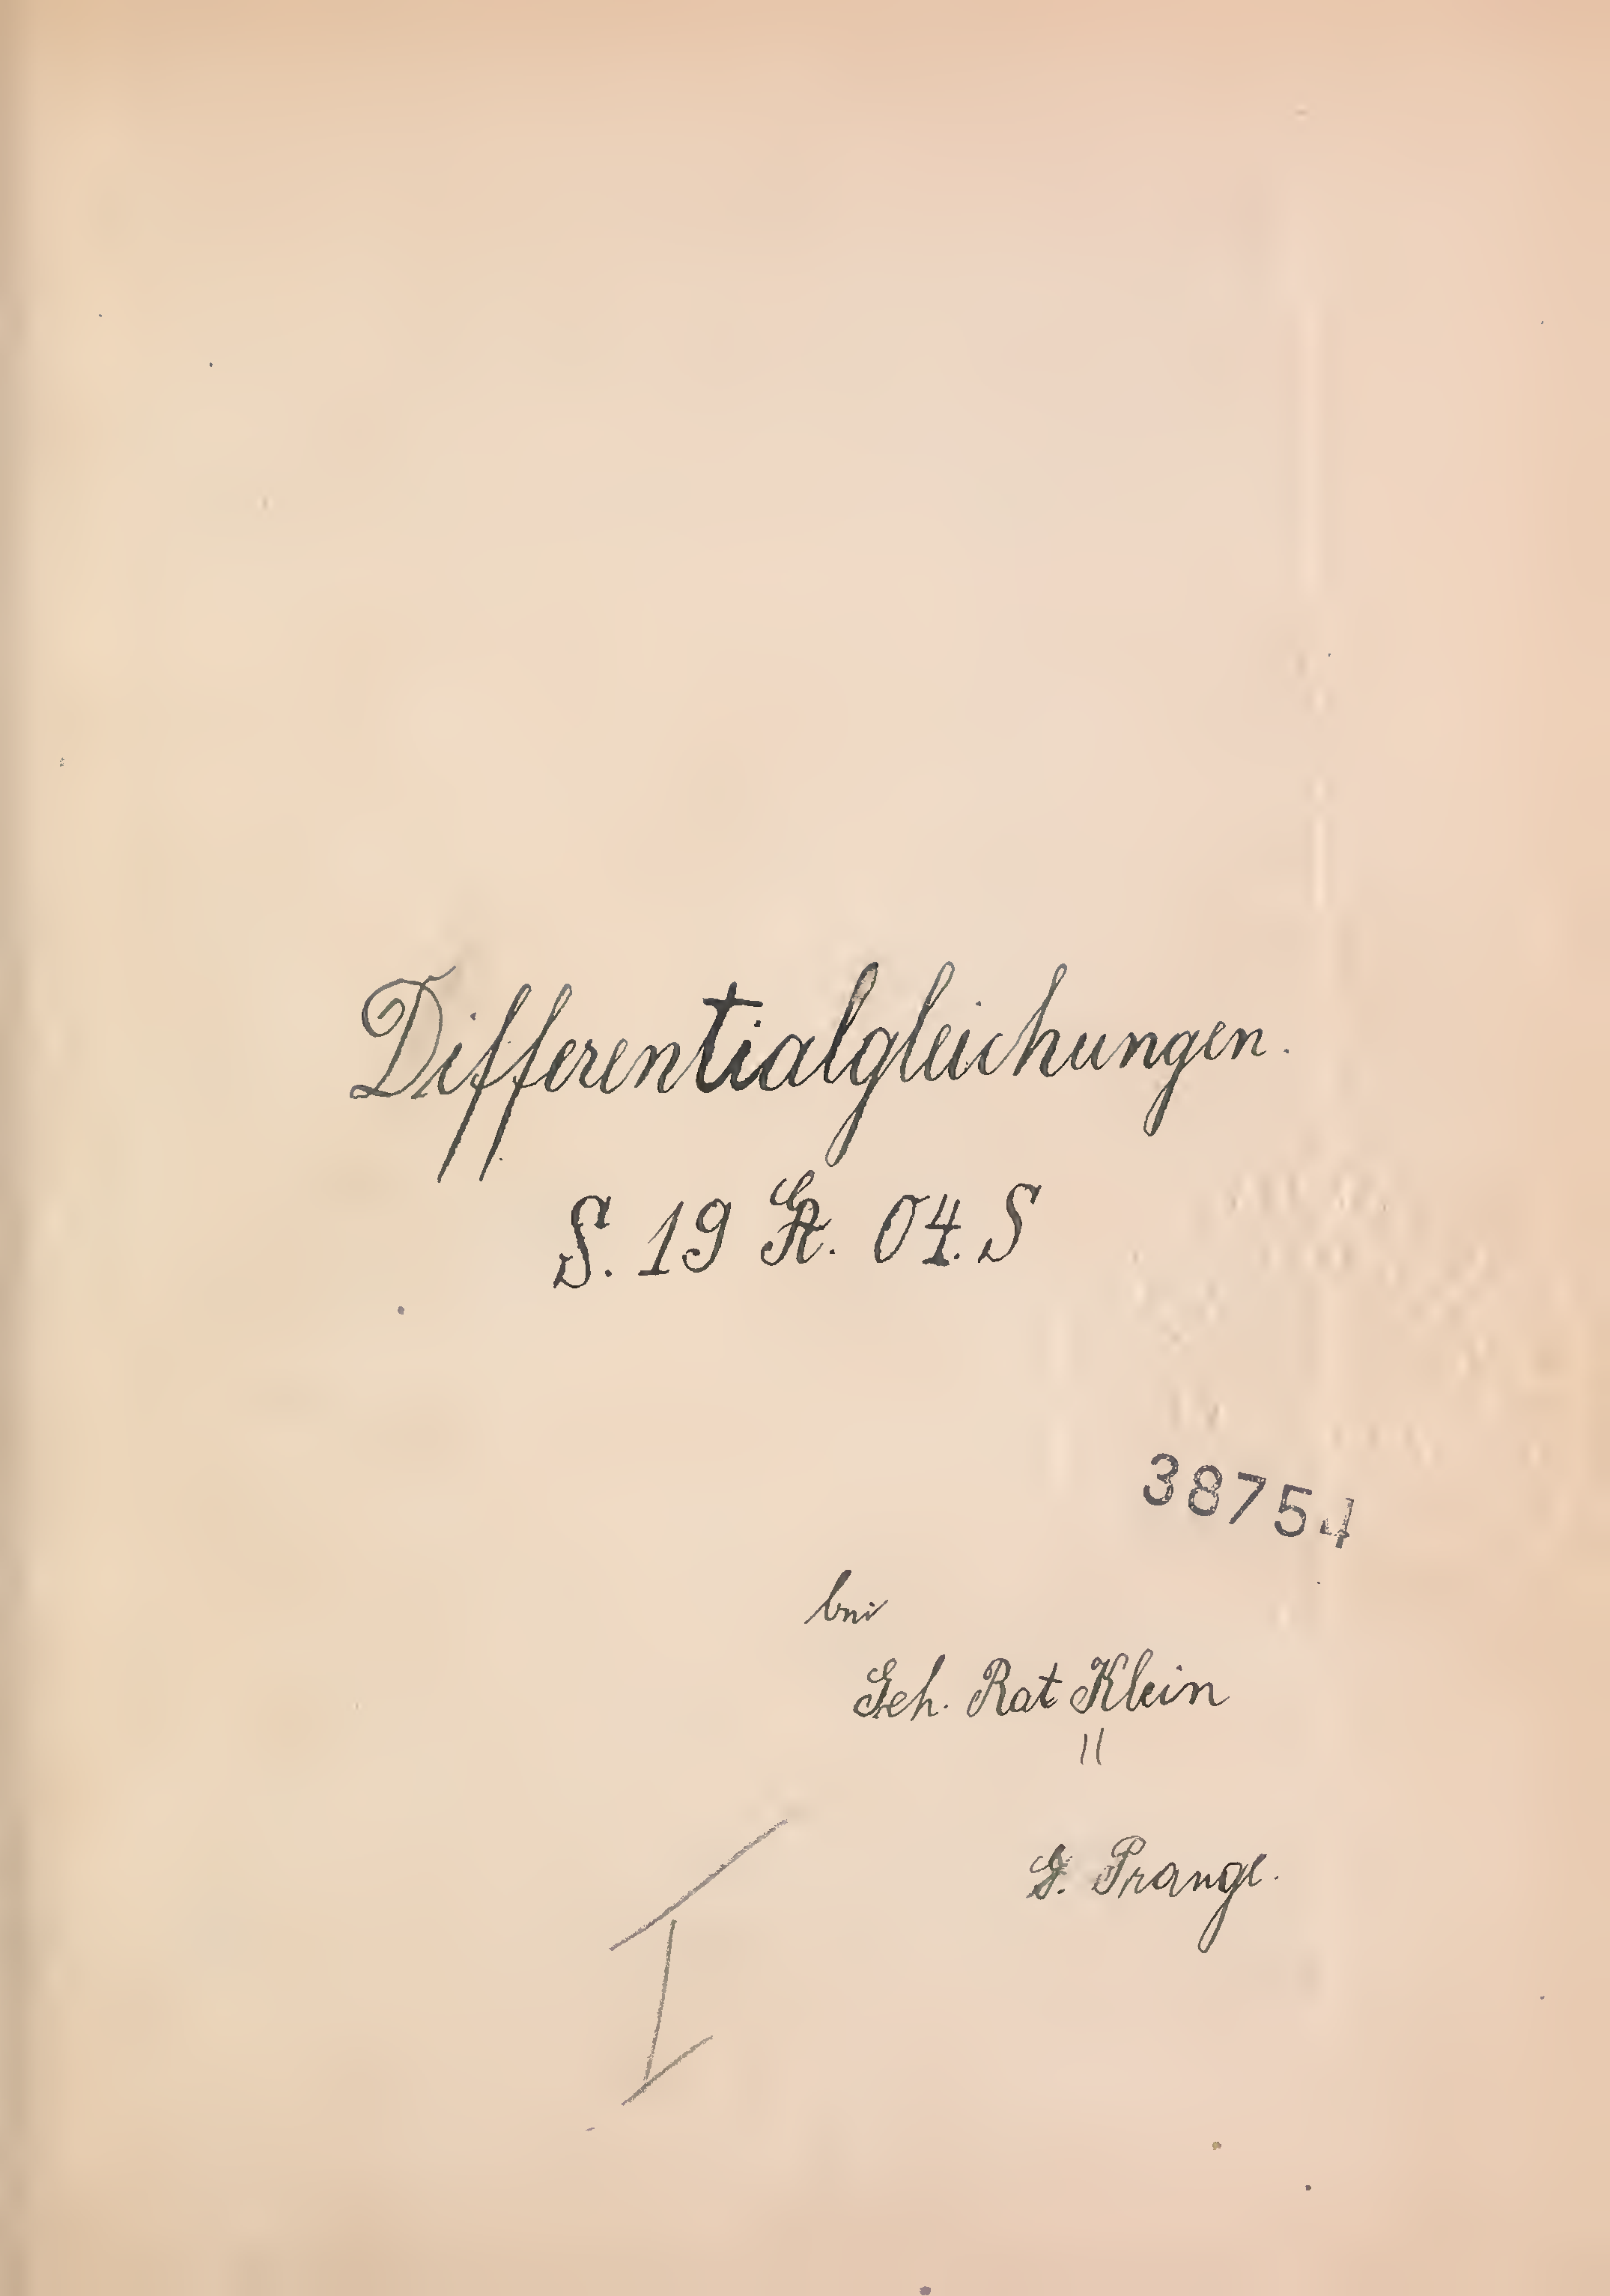 Differentialgleichungen.
S. 19 St. 04. S
38754
bei
Geh. Rat Klein
G. Prange.
I